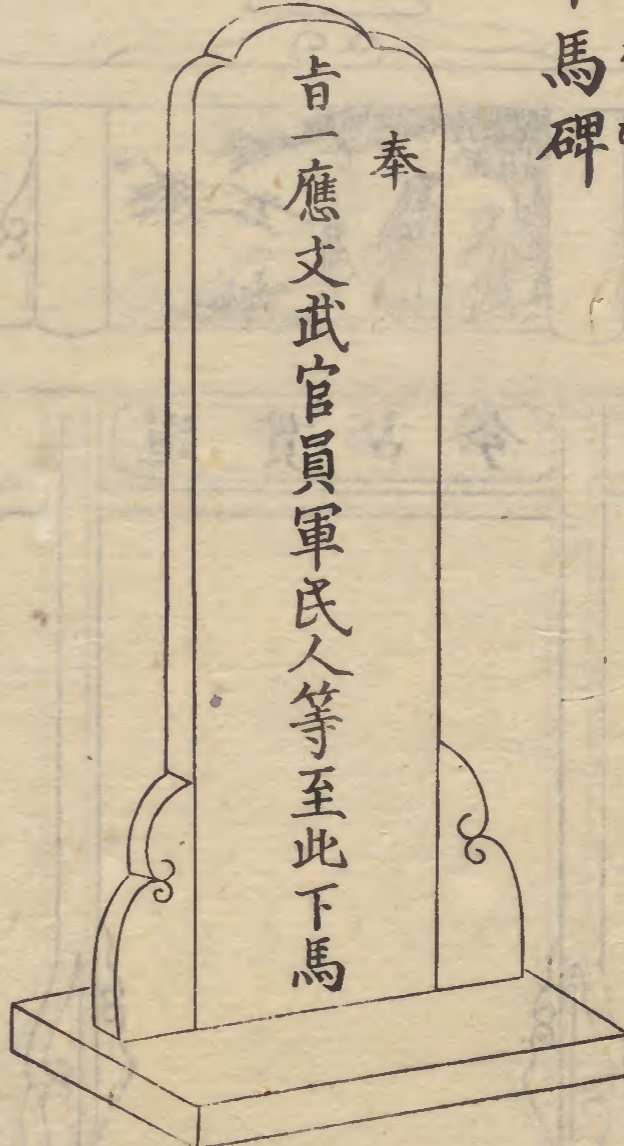 馬碑
奉
旨一應文武官員軍民人等至此下馬